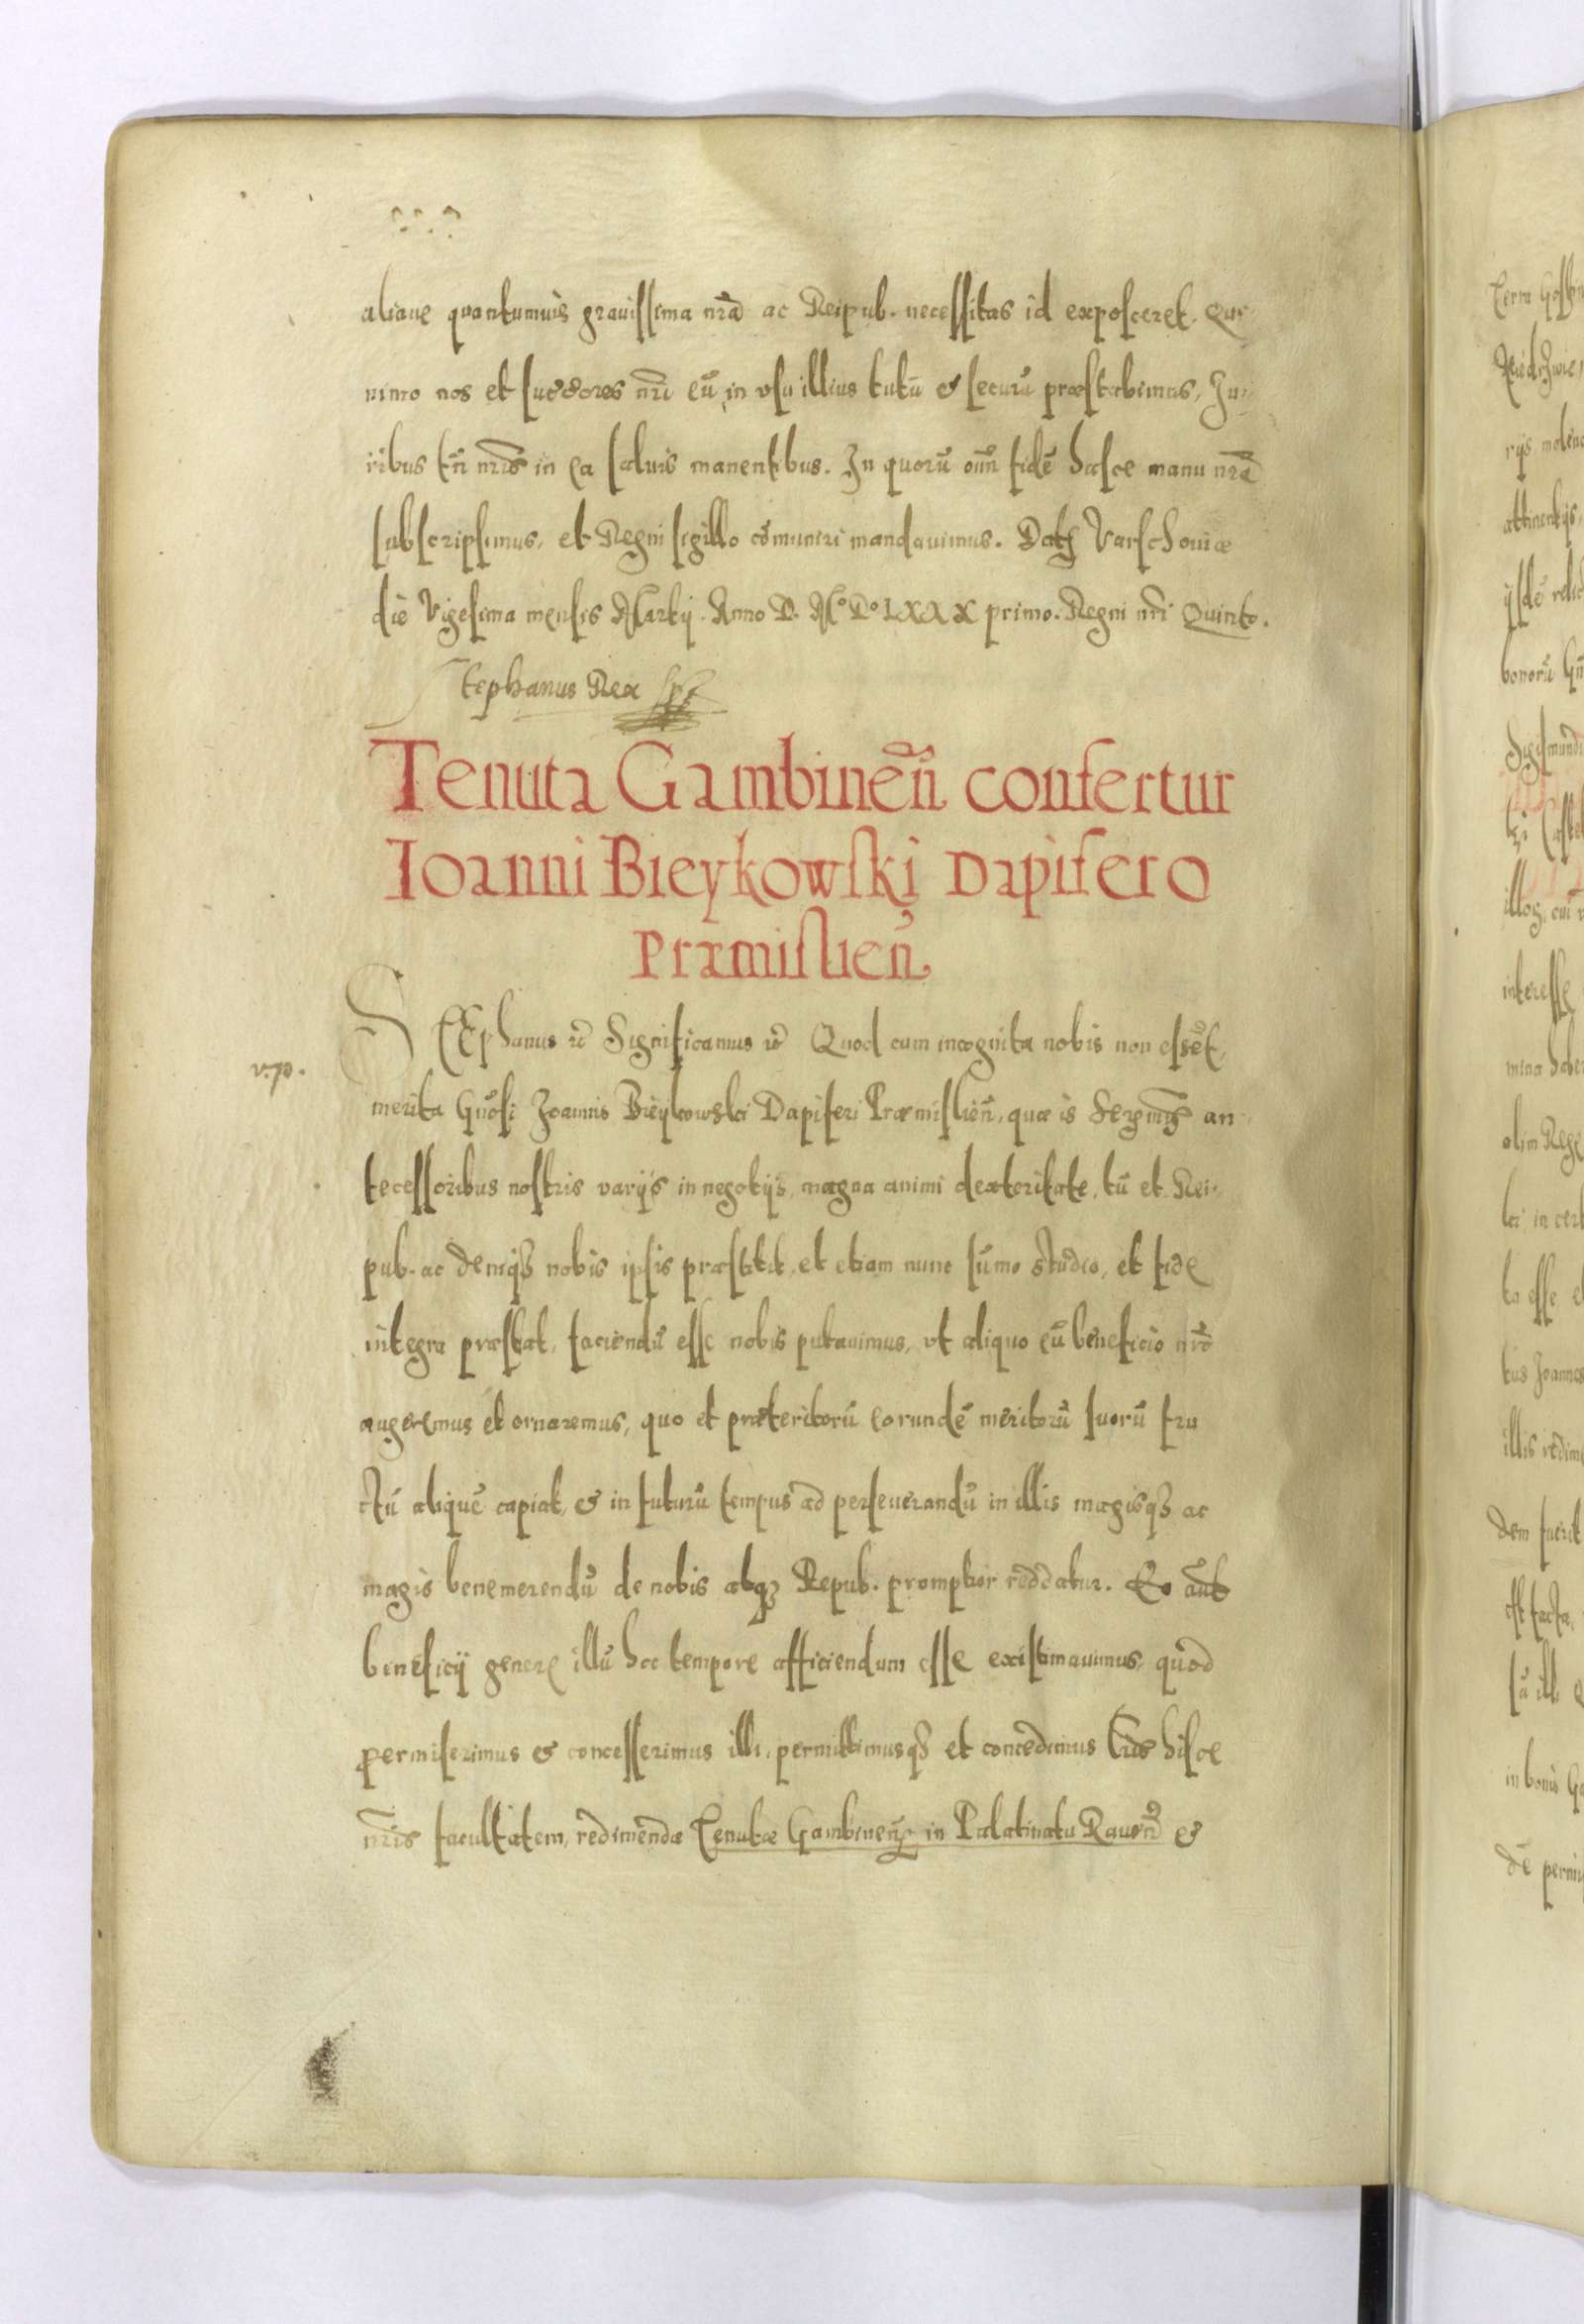 aliaue quantumuis grauissima nr̃a ac Reipub. necessitas id exposceret. Qui
nimo nos et succ̃ores nr̃i eũ in vsu illius tutũ & securũ præstabimus, Iu-
ribus tñ nr̃is in ea saluis manentibus. In quorũ oĩm fidẽ hasce manu nr̃a
subscripsimus, et Regni sigillo cõmuniri mandauimus. Datȝ Varschouiæ
die Vigesima mensis Martij. Anno D. M° D° LXXX primo. Regni nr̃i Quinto.
Stephanus Rex
Tenuta Gambineñ confertur
Ioanni Bieykowski Dapifero
Præmislieñ
v. p.
STEphanus &c Significamus &c Quod cum incognita nobis non essẽt,
merita Gñosi Joannis Bieykowski Dapiferi Præmislieñ, quæ is Serꝫmis an-
tecessoribus nostris varijs in negotijs, magna animi dexteritate, tũ et Rei-
pub. ac deniqꝫ nobis ipsis præstitit, et etiam nunc sũmo studio, et fide
integra præstat, faciendũ esse nobis putauimus, vt aliquo eũ beneficio nr̃o
augeremus et ornaremus, quo et præteritorũ eorundẽ meritorũ suorũ fru
ctũ aliquẽ capiat, & in futurũ tempus ad perseuerandũ in illis magisqꝫ ac
magis benemerendũ de nobis atqꝫ Repub. promptior reddatur. Eo aũt
beneficij genere illũ hoc tempore afficiendum esse existimauimus, quod
permiserimus & concesserimus illi, permittimusqꝫ et concedimus l̃ris hisce
nr̃is facultatem, redimendæ Tenutæ Gambineñ in Palatinatu Raueñ &